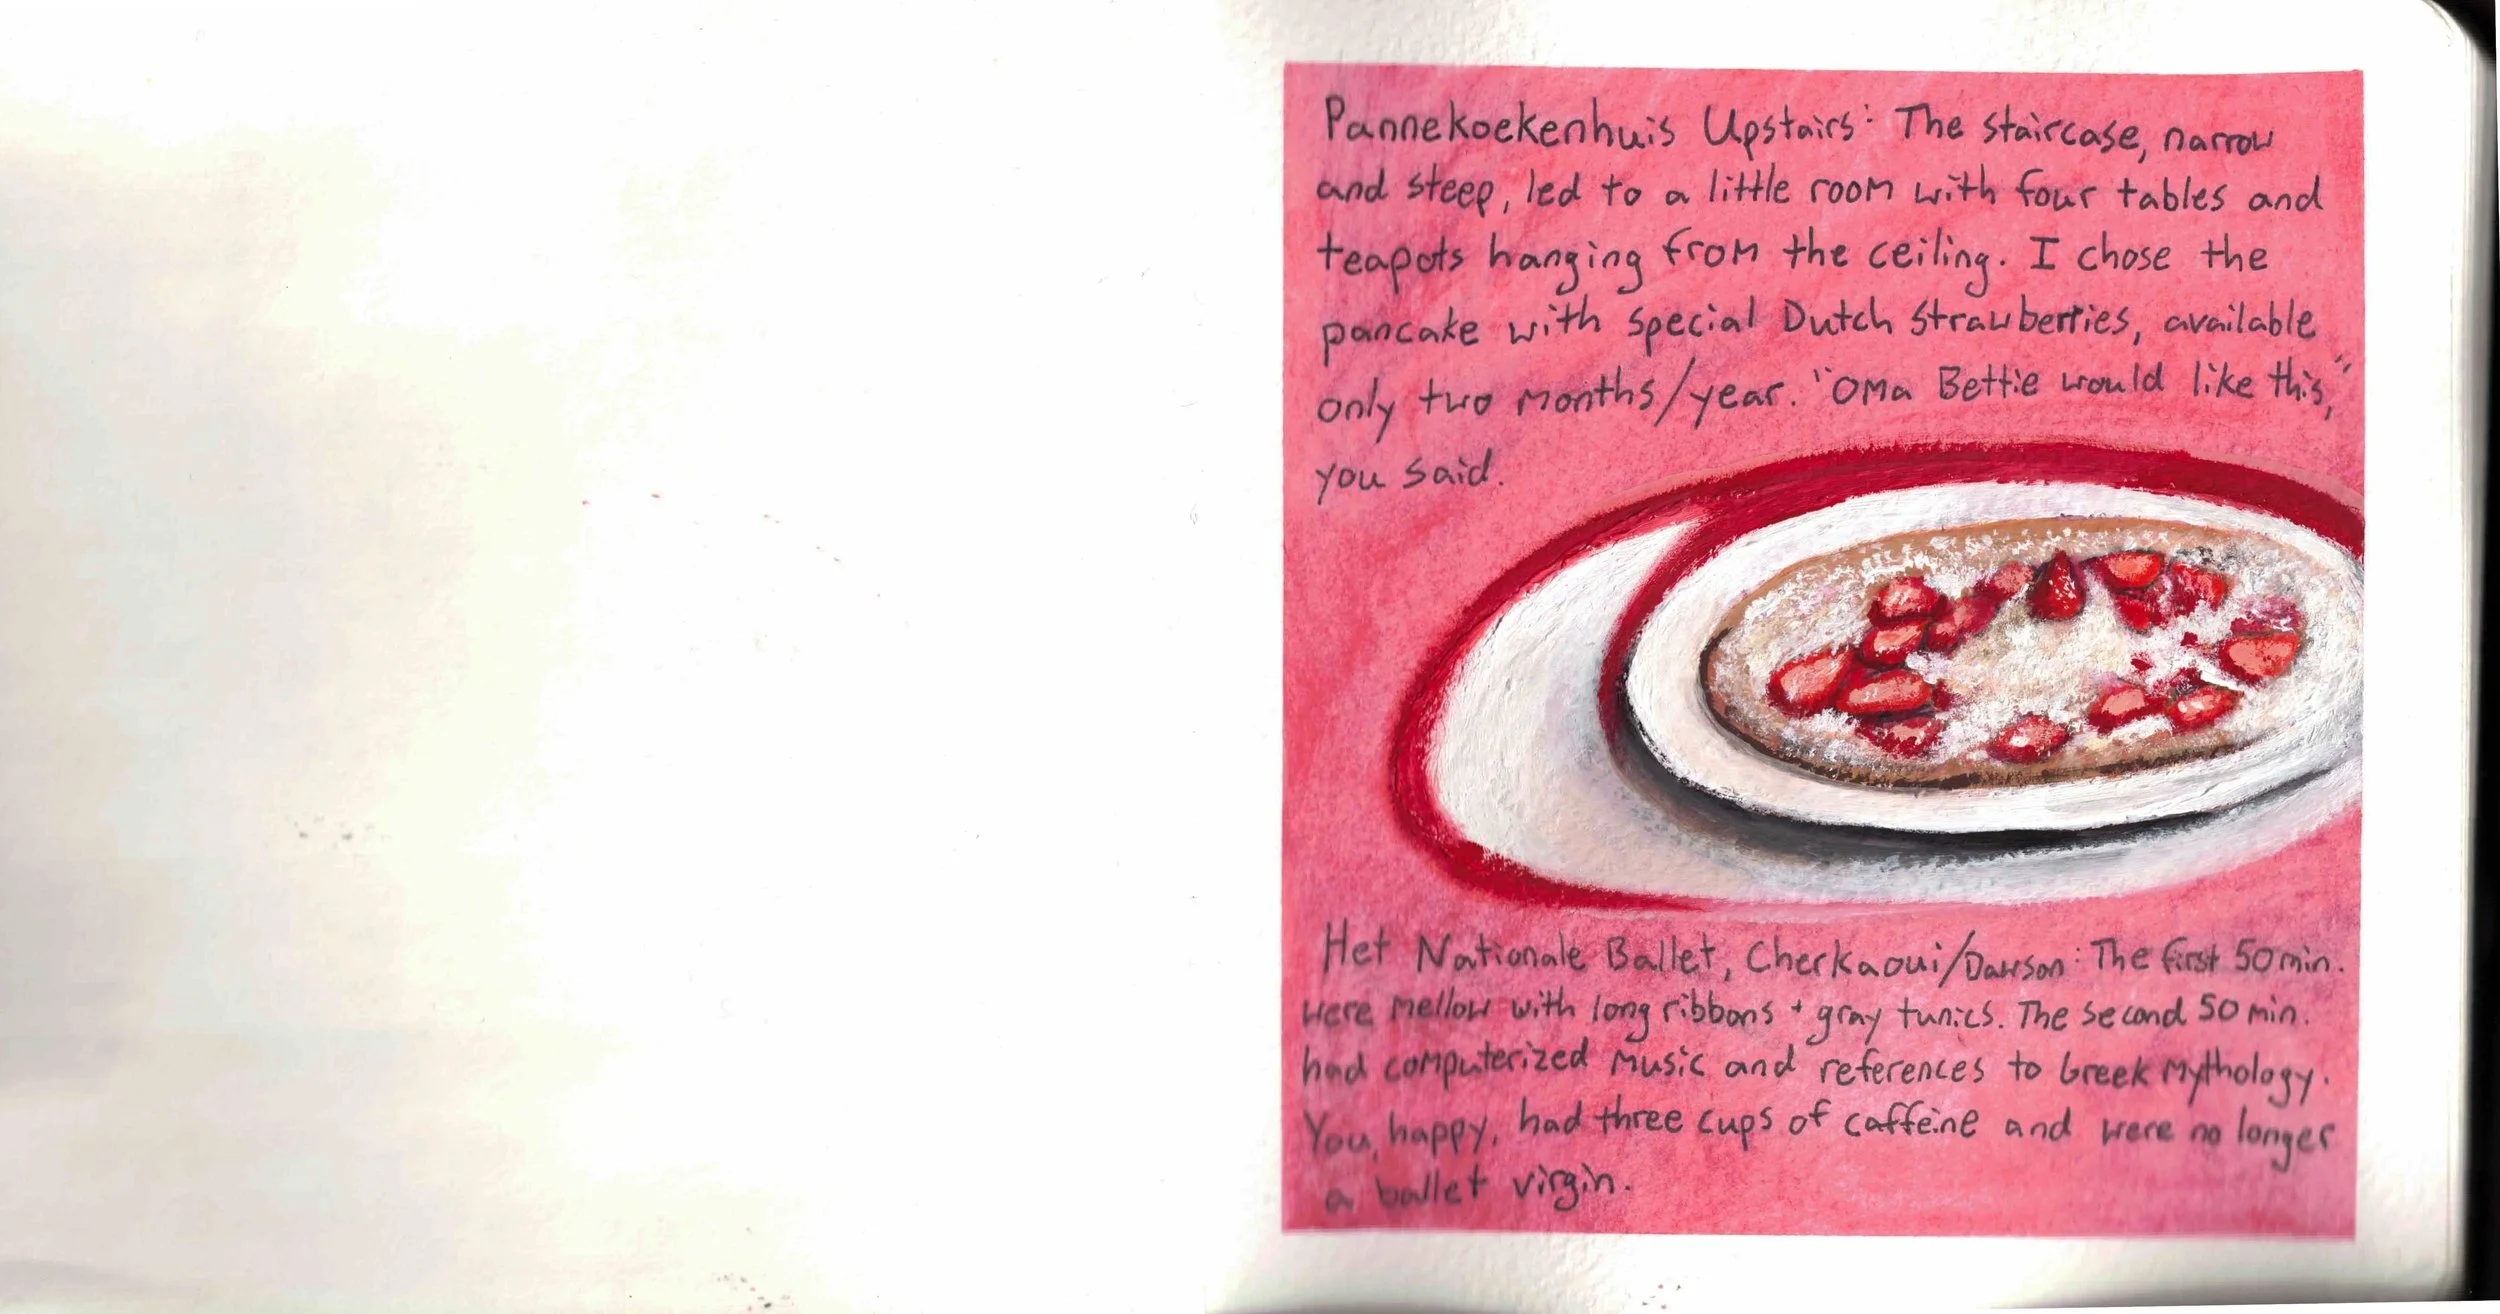 Pannekoekenhuis Upstairs: The staircase, narrow
and steep, led to a little room with four tables and
teapots hanging from the ceiling. I chose the
pancake with special Dutch strawberries, available
only two months/year. "Oma Bettie would like this,"
you said.
Het Nationale Ballet, Cherkaoui/Dawson: The first 50 min.
were mellow with long ribbons + gray tunics. The second 50 min.
had computerized music and references to Greek mythology.
You, happy, had three cups of caffeine and were no longer
a ballet virgin.